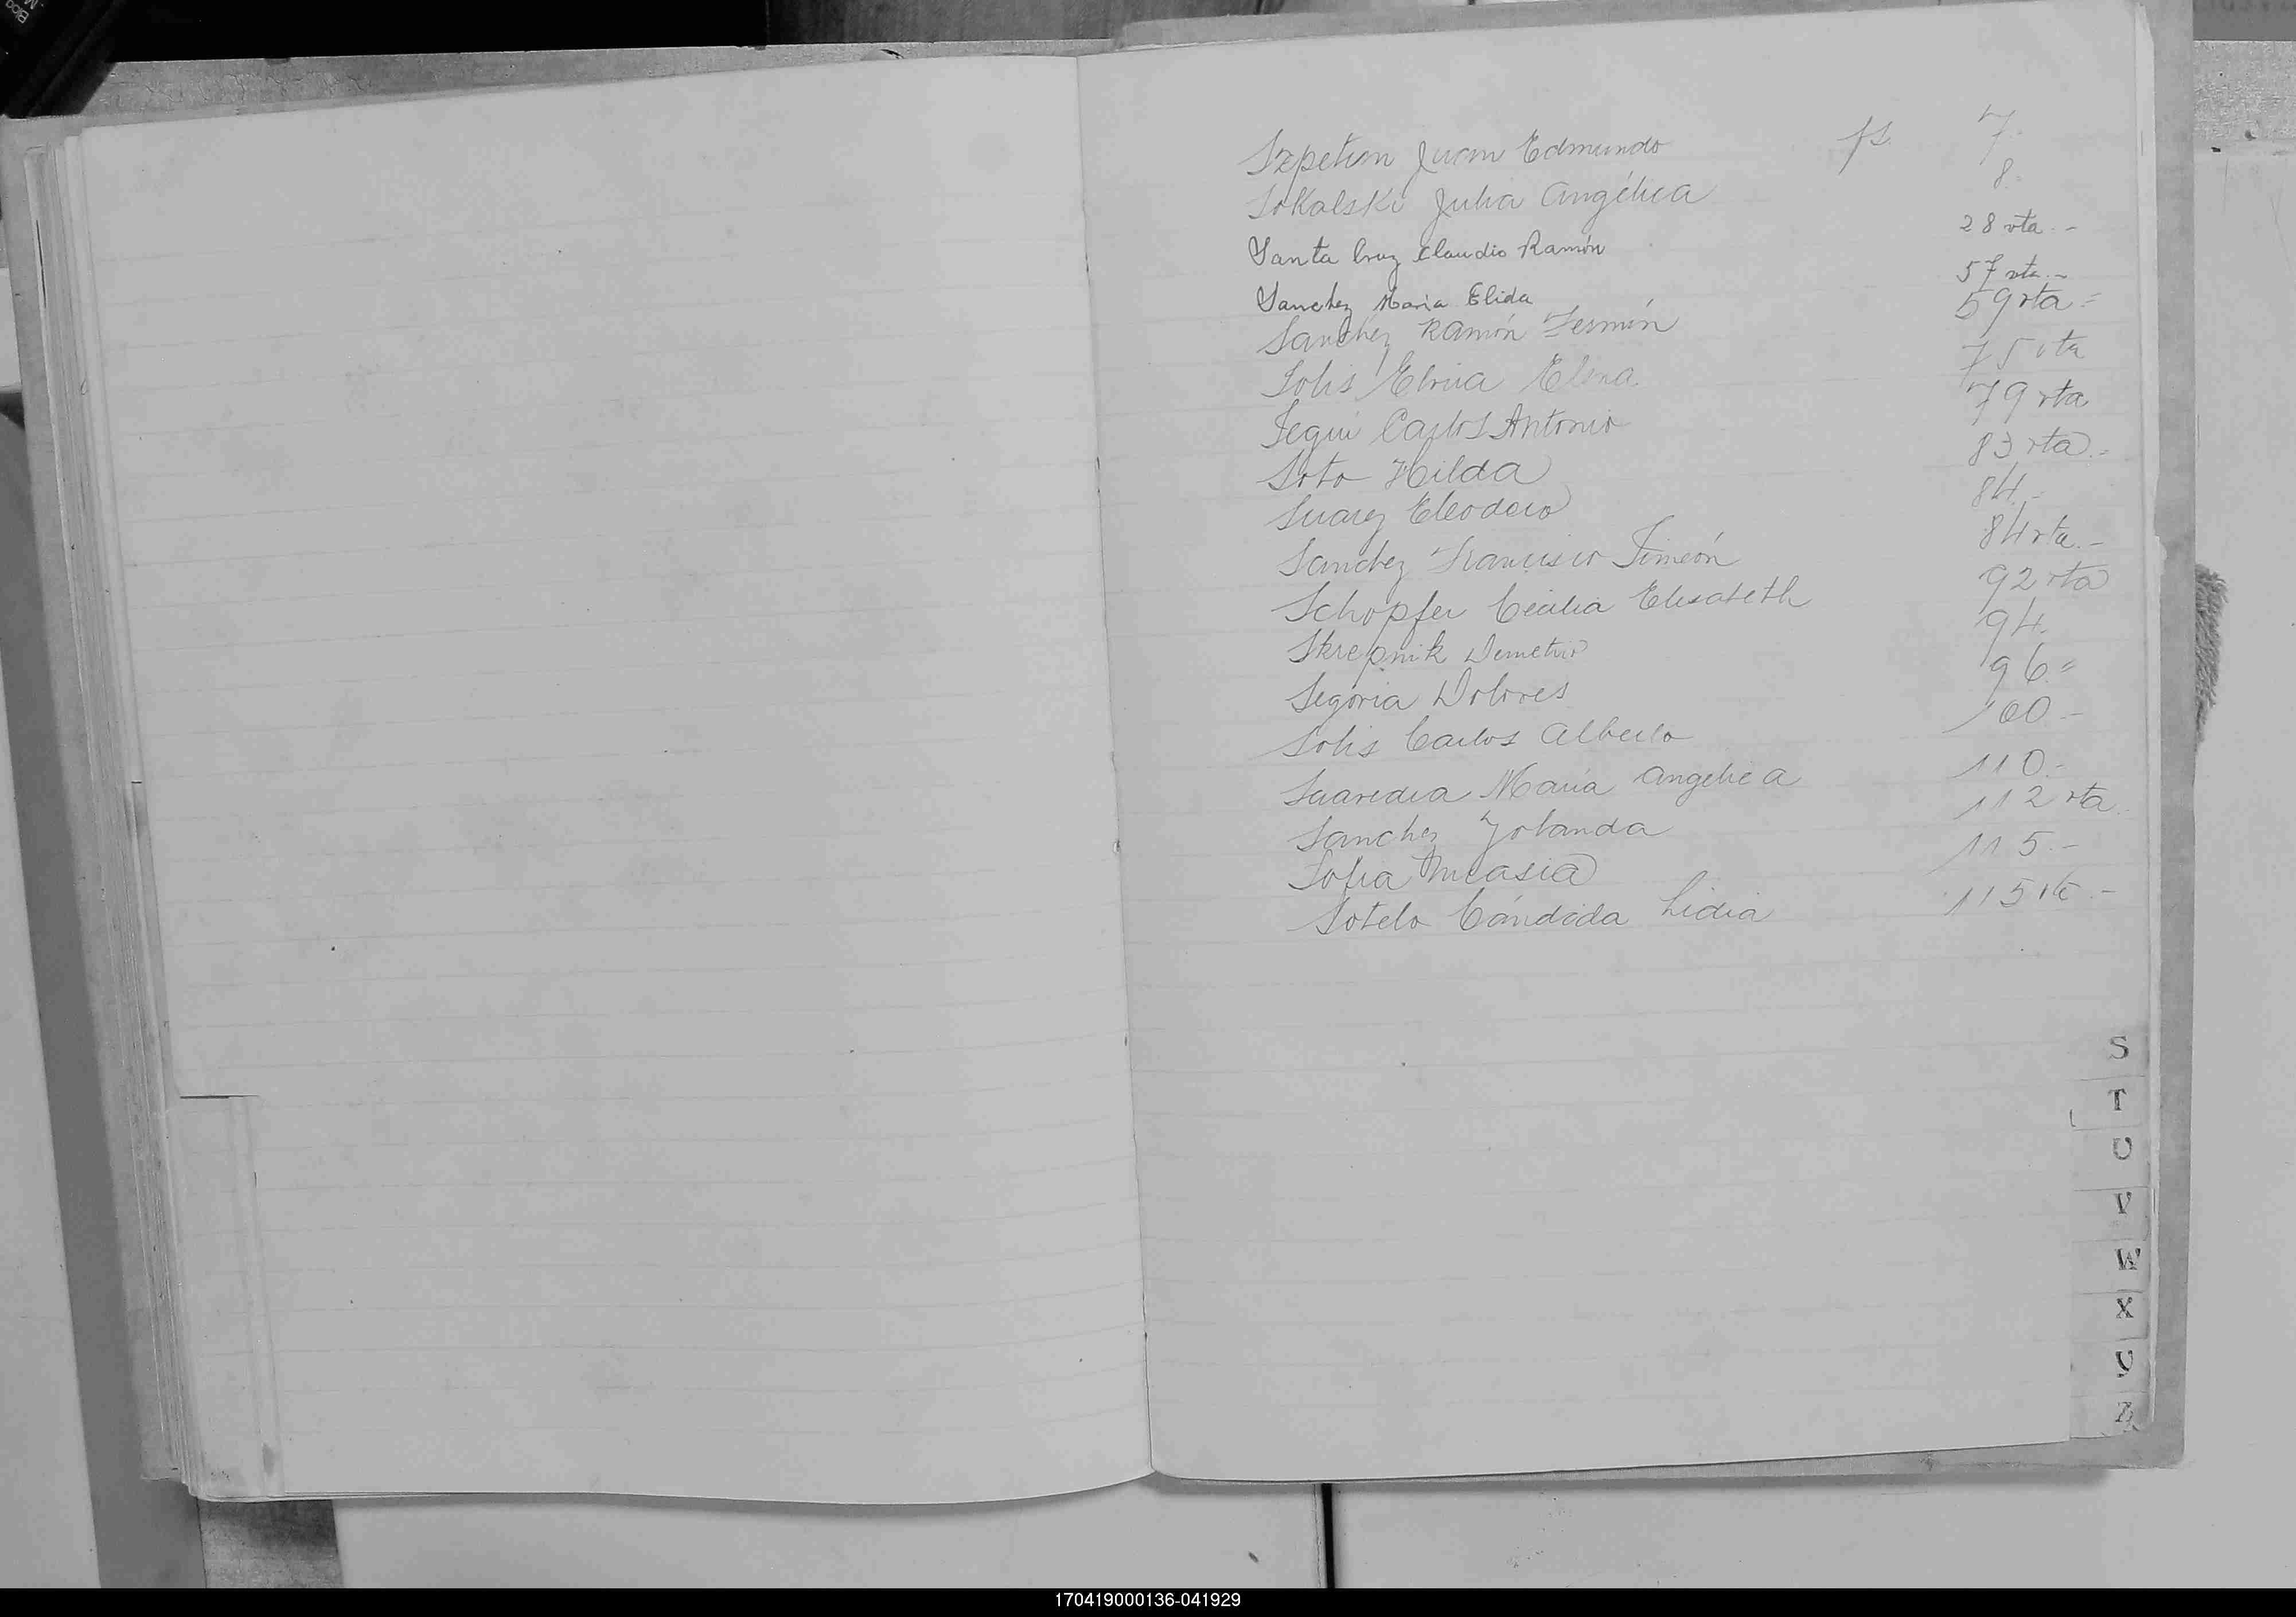 Szpetun Juan Edmundo fs. 7.
Sokalski Julia Angélica 8.-
Santa Cruz Claudio Ramón 28 vta.-
Sanchez Maria Elida 57 vta.-
Sanchez Ramón Fermín 59 vta.=
Solis Elvira Elena 75 vta
Segui Carlos Antonio 79 vta
Soto Hilda 83 vta.-
Suarez Eleodoro 84.-
Sanchez Francisco Simeón 84 vta.-
Schopfer Cecilia Elisabeth 92 vta
Skrepnik Demetrio 94.
Segovia Dolores 96.=
Solis Carlos Alberto 100.-
María Angelica 110.-
Sanchez Yolanda 112 vta.
Sofia 115.-
Sotelo Cándida Lidia 115 vta.-
S
T
U
V
W
X
Z
170419000136-041929